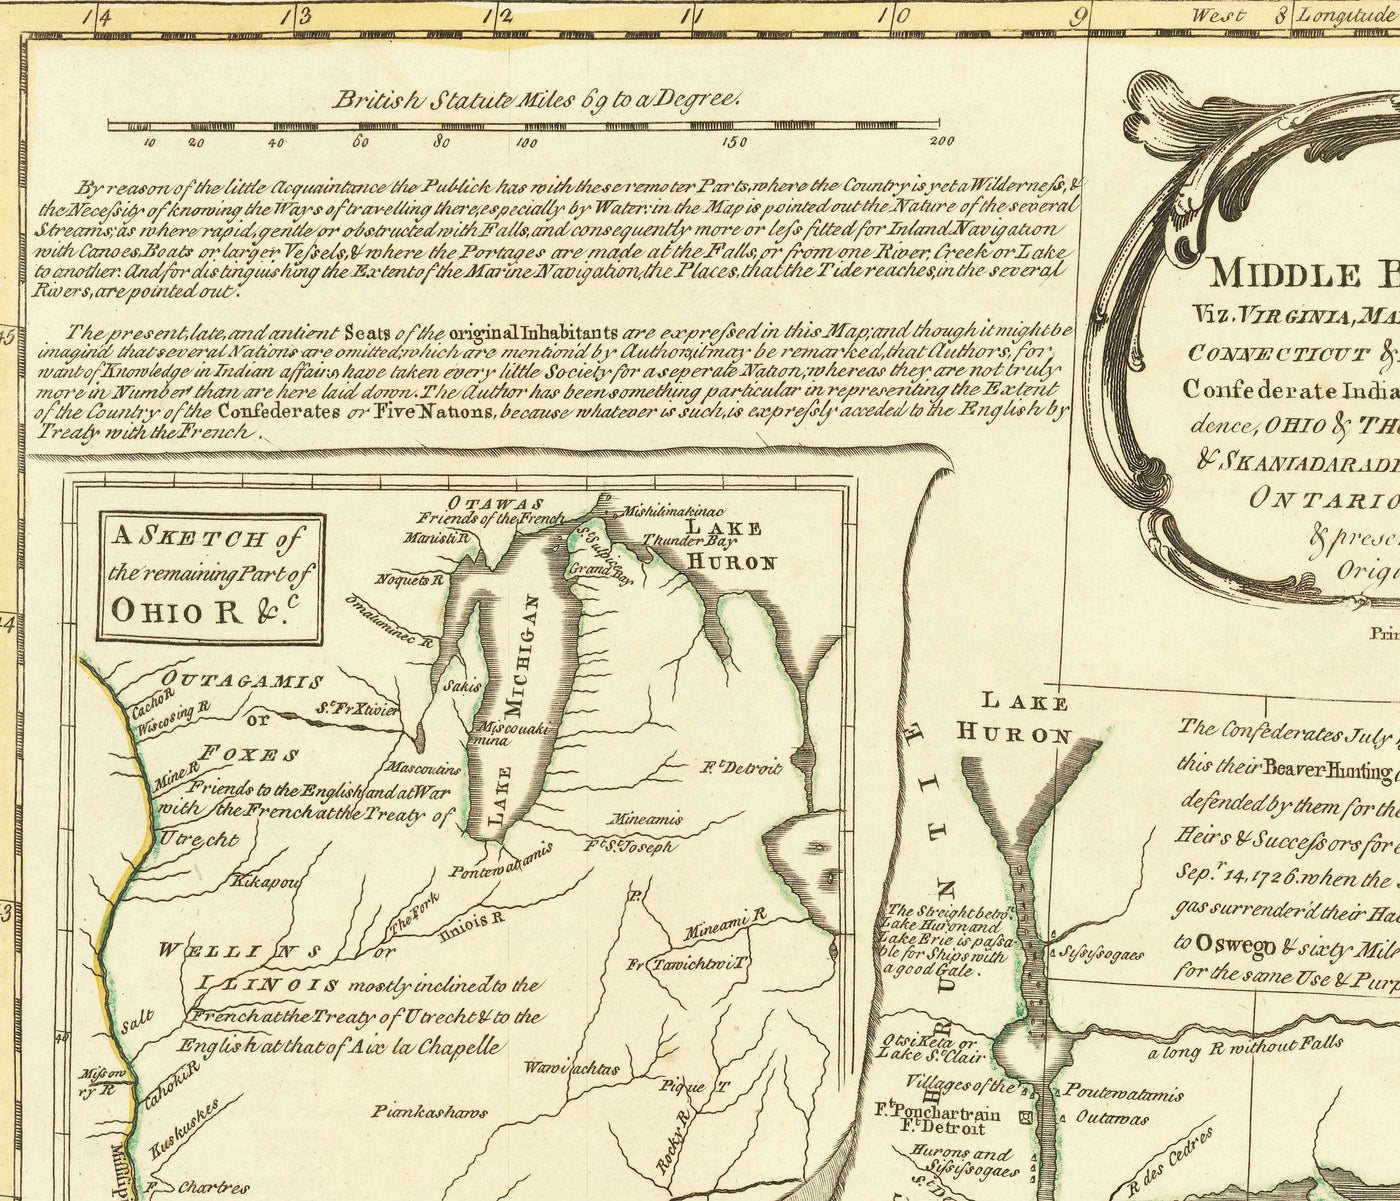 14 13 12 11 10 9 West 8 Longitude
British Statute Miles 69 to a Degree.
10 20 40 60 80 100 150 200
By reason of the little Acquaintance the Publick has with these remoter Parts, where the Country is yet a Wilderness, &
the Necessity of knowing the Ways of travelling there, especially by Water: in the Map is pointed out the Nature of the several
Streams; as where rapid, gentle or obstructed with Falls, and consequently more or less fitted for Inland Navigation
with Canoes, Boats or larger Vessels, & where the Portages are made at the Falls, or from one River, Creek or Lake
to another. And for distinguishing the Extent of the Marine Navigation, the Places, that the Tide reaches, in the several
Rivers, are pointed out.
The present, late, and antient Seats of the original Inhabitants are expressed in this Map; and though it might be
imagind that several Nations are omitted; which are mention'd by Authors; it may be remarked, that Authors, for
want of Knowledge in Indian affairs, have taken every little Society for a seperate Nation; whereas they are not truly
more in Number than are here laid down. The Author has been something particular in representing the Extent
of the Country of the Confederates or Five Nations, because whatever is such, is expressly acceded to the English by
Treaty with the French.
MIDDLE B
Viz. VIRGINIA, MA
CONNECTICUT &
Confederate India
dence, OHIO & TH
& SKANIADARADI
ONTARIO
& prese
Origi
Prin
45
44
43
A SKETCH of
the remaining Part of
OHIO R &c.
OTAWAS
Friends of the French
Manisti R
Noquets R
Omaluminec R
Mishilimakinac
LAKE
HURON
Thunder Bay
St. Sulpice
Grand Bay
LAKE MICHIGAN
OUTAGAMIS
Cacho R
Wiscosing R
or
St. Fr Xtivier
Sakis
Miscouaki
mina
FOXES
Mine R
Mascoutins
Friends to the English, and at War
with the French at the Treaty of
Utrecht
Ft. Detroit
Mineamis
Ft. St. Joseph
Pontewatamis
Kikapou
The Fork
Ilniois R
P.
Mineami R
WELLINS
or
Fr Tawichtwi T
ILINOIS mostly inclined to the
French at the Treaty of Utrecht & to the
English at that of Aix la Chapelle
Salt
40
Misson
ry R
Cahoki R
Kuskuskes
Wawiachtas
Pique T
Piankashaws
Rocky R
F. Chartres
Missip
LAKE
HURON
ENTIRE
The Streight betwn.
Lake Huron and
Lake Erie is passa-
ble for Ships with
a good Gale.
Sissisogaes
Otsi Keta or
Lake St. Clair
a long R without Falls
Villages of the
Poutewatamis
Ft. Ponchartrain
Ft. Detroit
Outawas
Hurons and
Sissisogaes
R des Cedres
The Confederates July
this their Beaver-Hunting
defended by them for the
Heirs & Successors for e
Sepr. 14, 1726. when the
gas surrender'd their Ha
to Oswego & sixty Mile
for the same Use & Purp